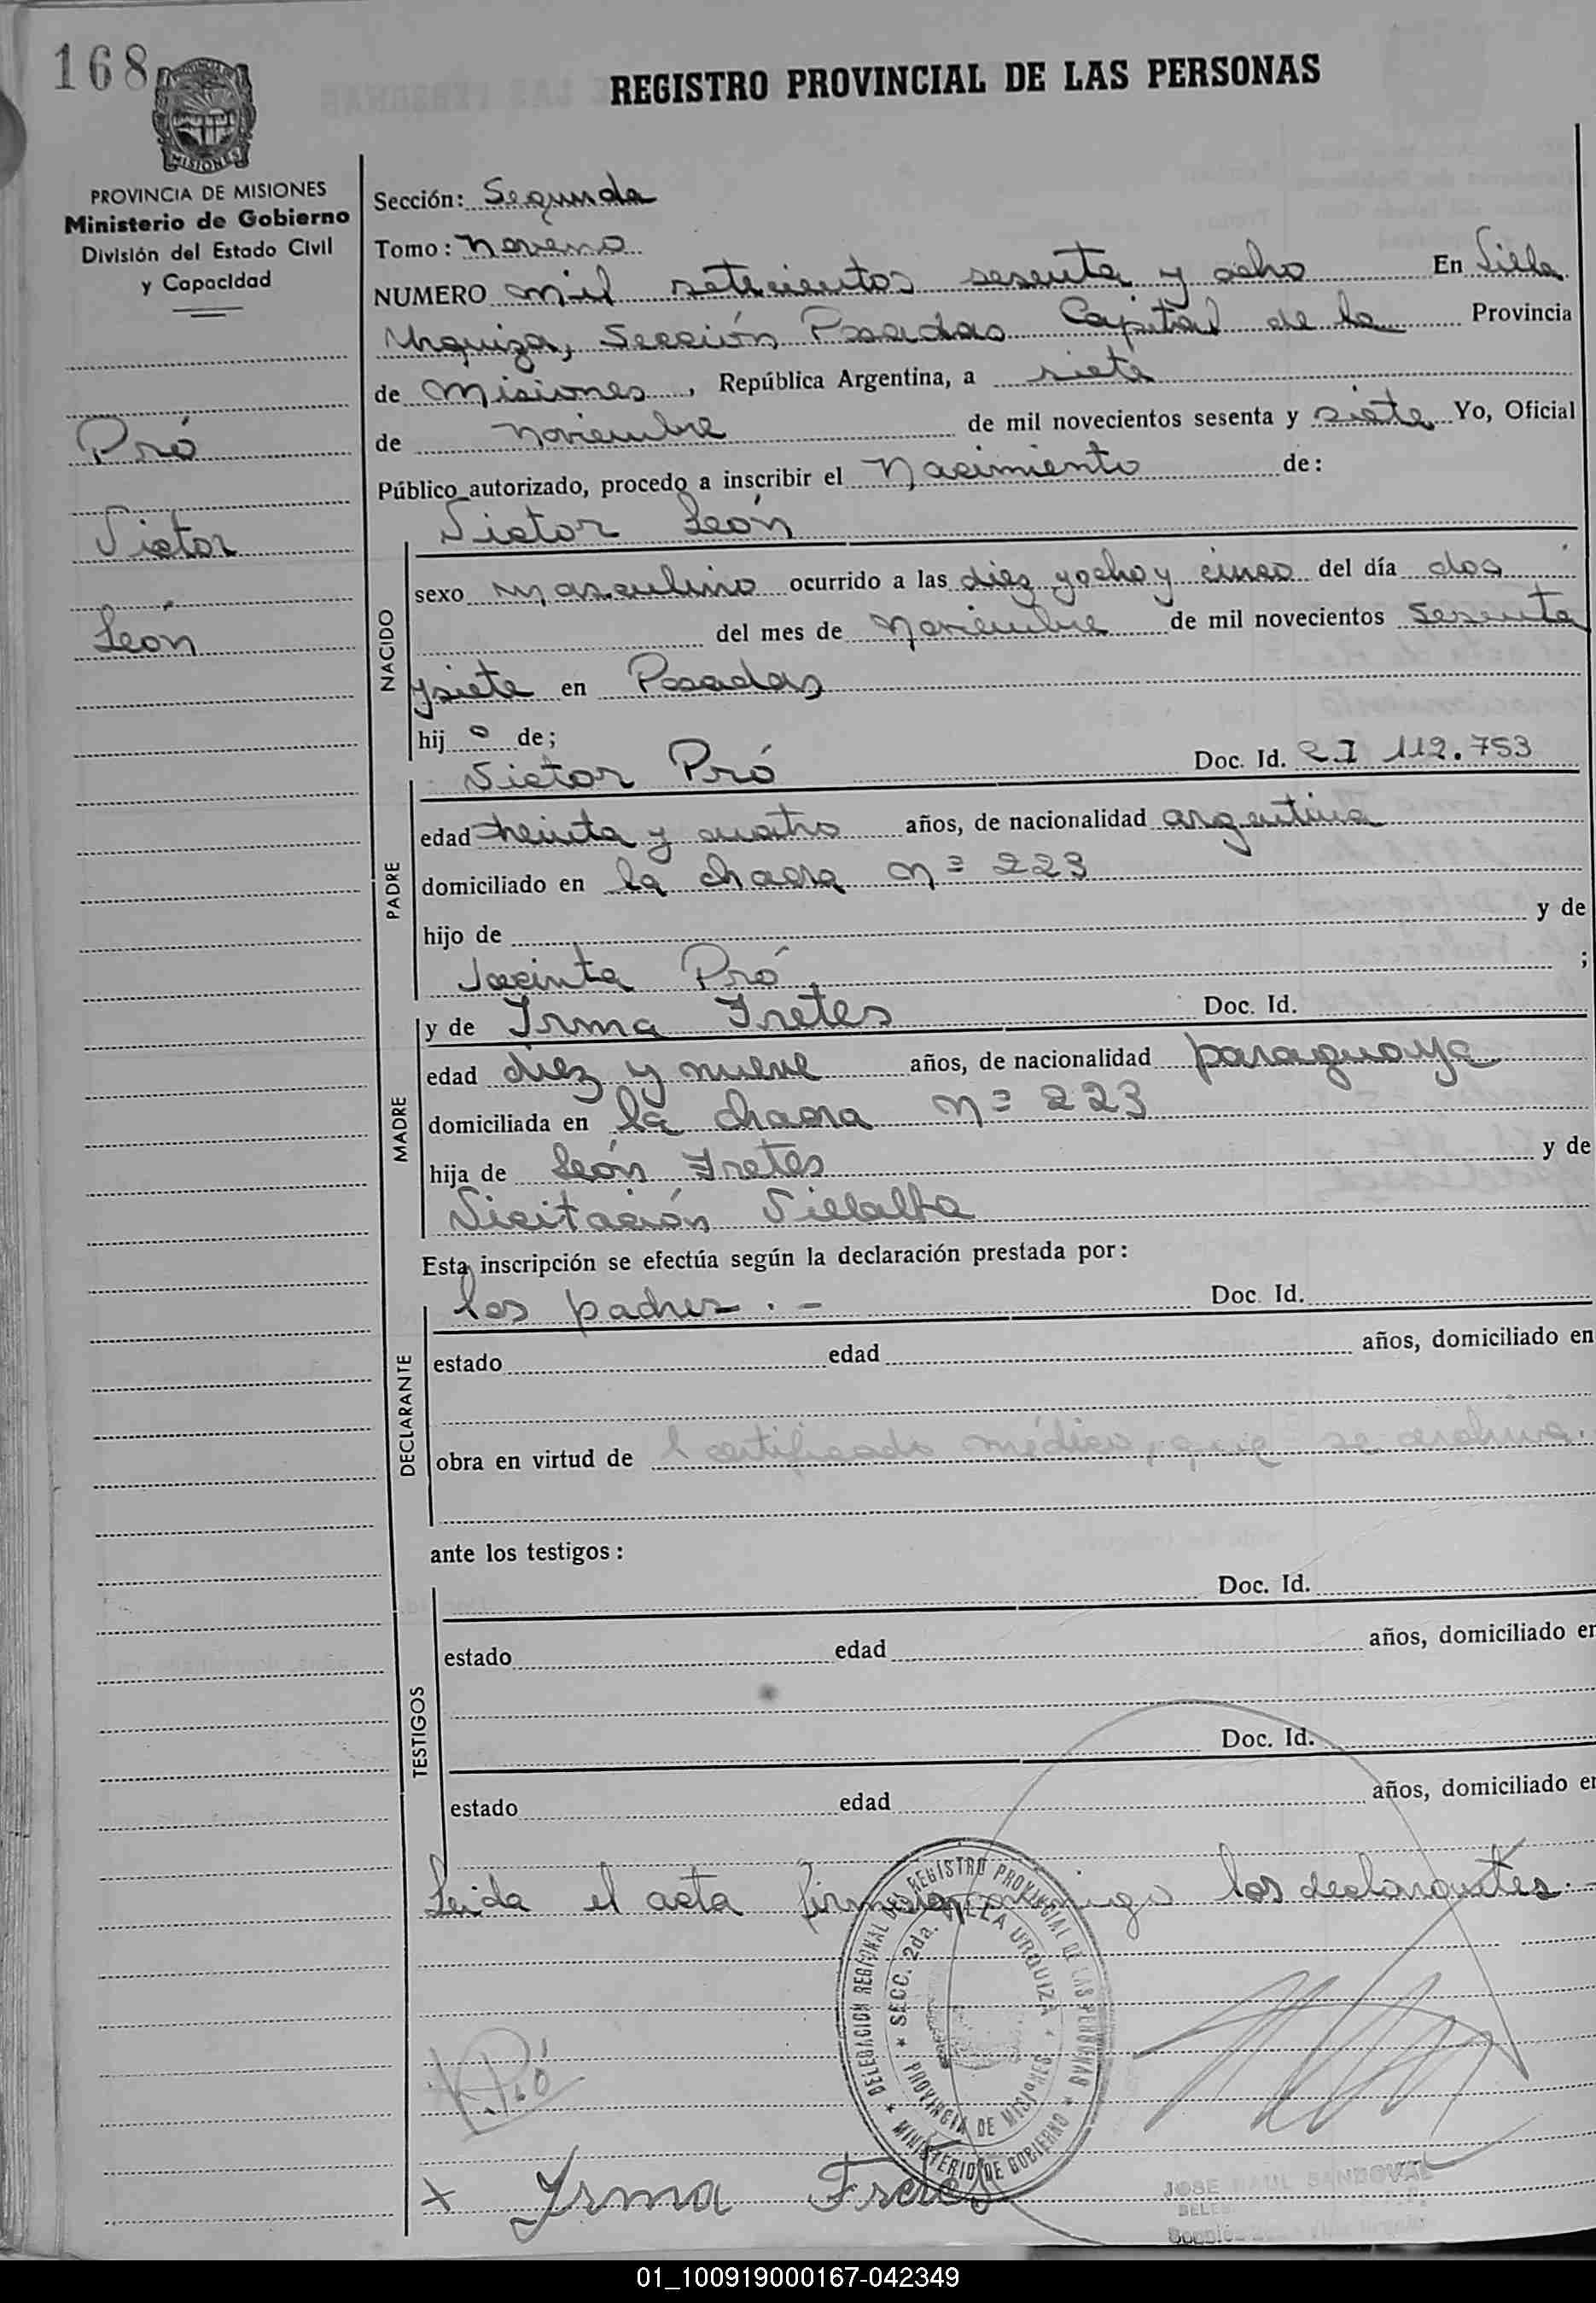 168
REGISTRO PROVINCIAL DE LAS PERSONAS
MISIONES
PROVINCIA DE MISIONES
Ministerio de Gobierno
División del Estado Civil
y Capacidad
Pró
Victor
León
Sección: Segunda
Tomo: Noveno
NUMERO mil setecientos sesenta y ocho En Villa
Urquiza, Sección Posadas Capital de la Provincia
de Misiones, República Argentina, a siete
de noviembre de mil novecientos sesenta y siete Yo, Oficial
Público autorizado, procedo a inscribir el Nacimiento de:
Victor León
NACIDO
sexo masculino ocurrido a las diez y ocho y cinco del día dos
del mes de Noviembre de mil novecientos sesenta
y siete en Posadas
hij o de;
Victor Pró Doc. Id. 112.753
PADRE
edad treinta y cuatro años, de nacionalidad argentina
domiciliado en la chacra nº 223
hijo de y de
Jacinta Pró ;
MADRE
y de Irma Fretes Doc. Id.
edad diez y nueve años, de nacionalidad paraguaya
domiciliada en la chacra nº 223
hija de León Fretes y de
Visitación Villalba
Esta inscripción se efectúa según la declaración prestada por:
los padres . — Doc. Id.
DECLARANTE
estado edad años, domiciliado en
obra en virtud de l certificado médico, que se archiva.
ante los testigos:
Doc. Id.
TESTIGOS
estado edad años, domiciliado en
Doc. Id.
estado edad años, domiciliado en
Leida el acta firman conmigo los declarantes. -
DELEGACION REGIONAL DEL REGISTRO PROVINCIAL DE LAS PERSONAS
* MINISTERIO DE GOBIERNO *
* SECC. 2da. VILLA URQUIZA *
PROVINCIA DE MISIONES
Pró
x Irma Fretes
JOSE RAUL SANDOVAL
01_100919000167-042349